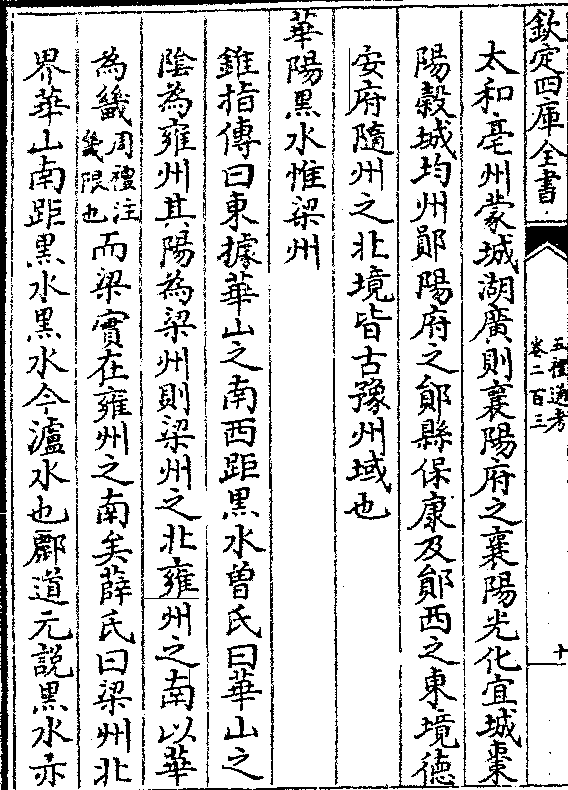 欽定四庫全書
五禮通考
卷二百三
十
太和亳州蒙城湖廣則襄陽府之襄陽光化宜城棗
陽榖城均州鄖陽府之鄖縣保康及鄖西之東境德
安府隨州之北境皆古豫州域也
華陽黑水惟梁州
錐指傳曰東據華山之南西距黑水曾氏曰華山之
陰為雍州其陽為梁州則梁州之北雍州之南以華
為畿周禮注畿限也而梁實在雍州之南矣薛氏曰梁州北
界華山南距黑水黑水今瀘水也酈道元説黑水亦